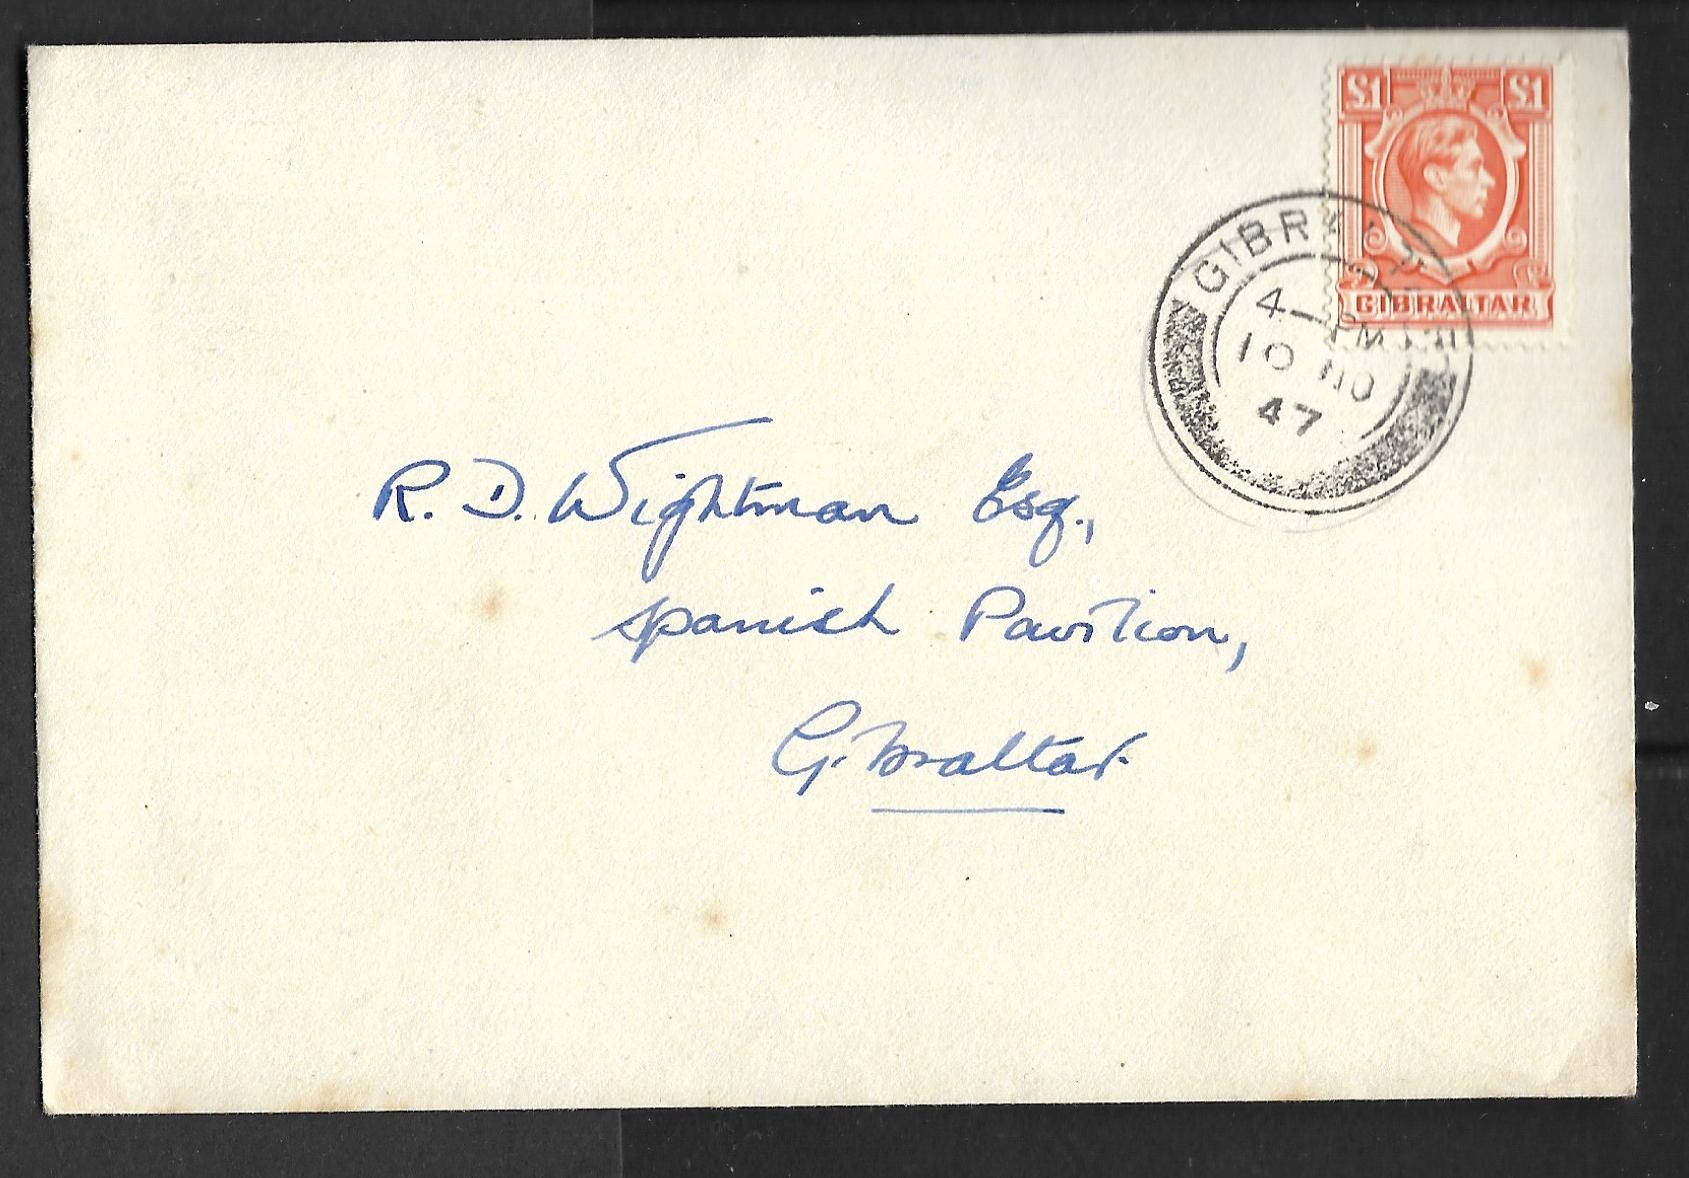 £1 £1
GIBRALTAR
GIBRALTAR
4-PM
10 NO
47
R. D. Wightman Esq.,
Spanish Pavilion,
Gibraltar.